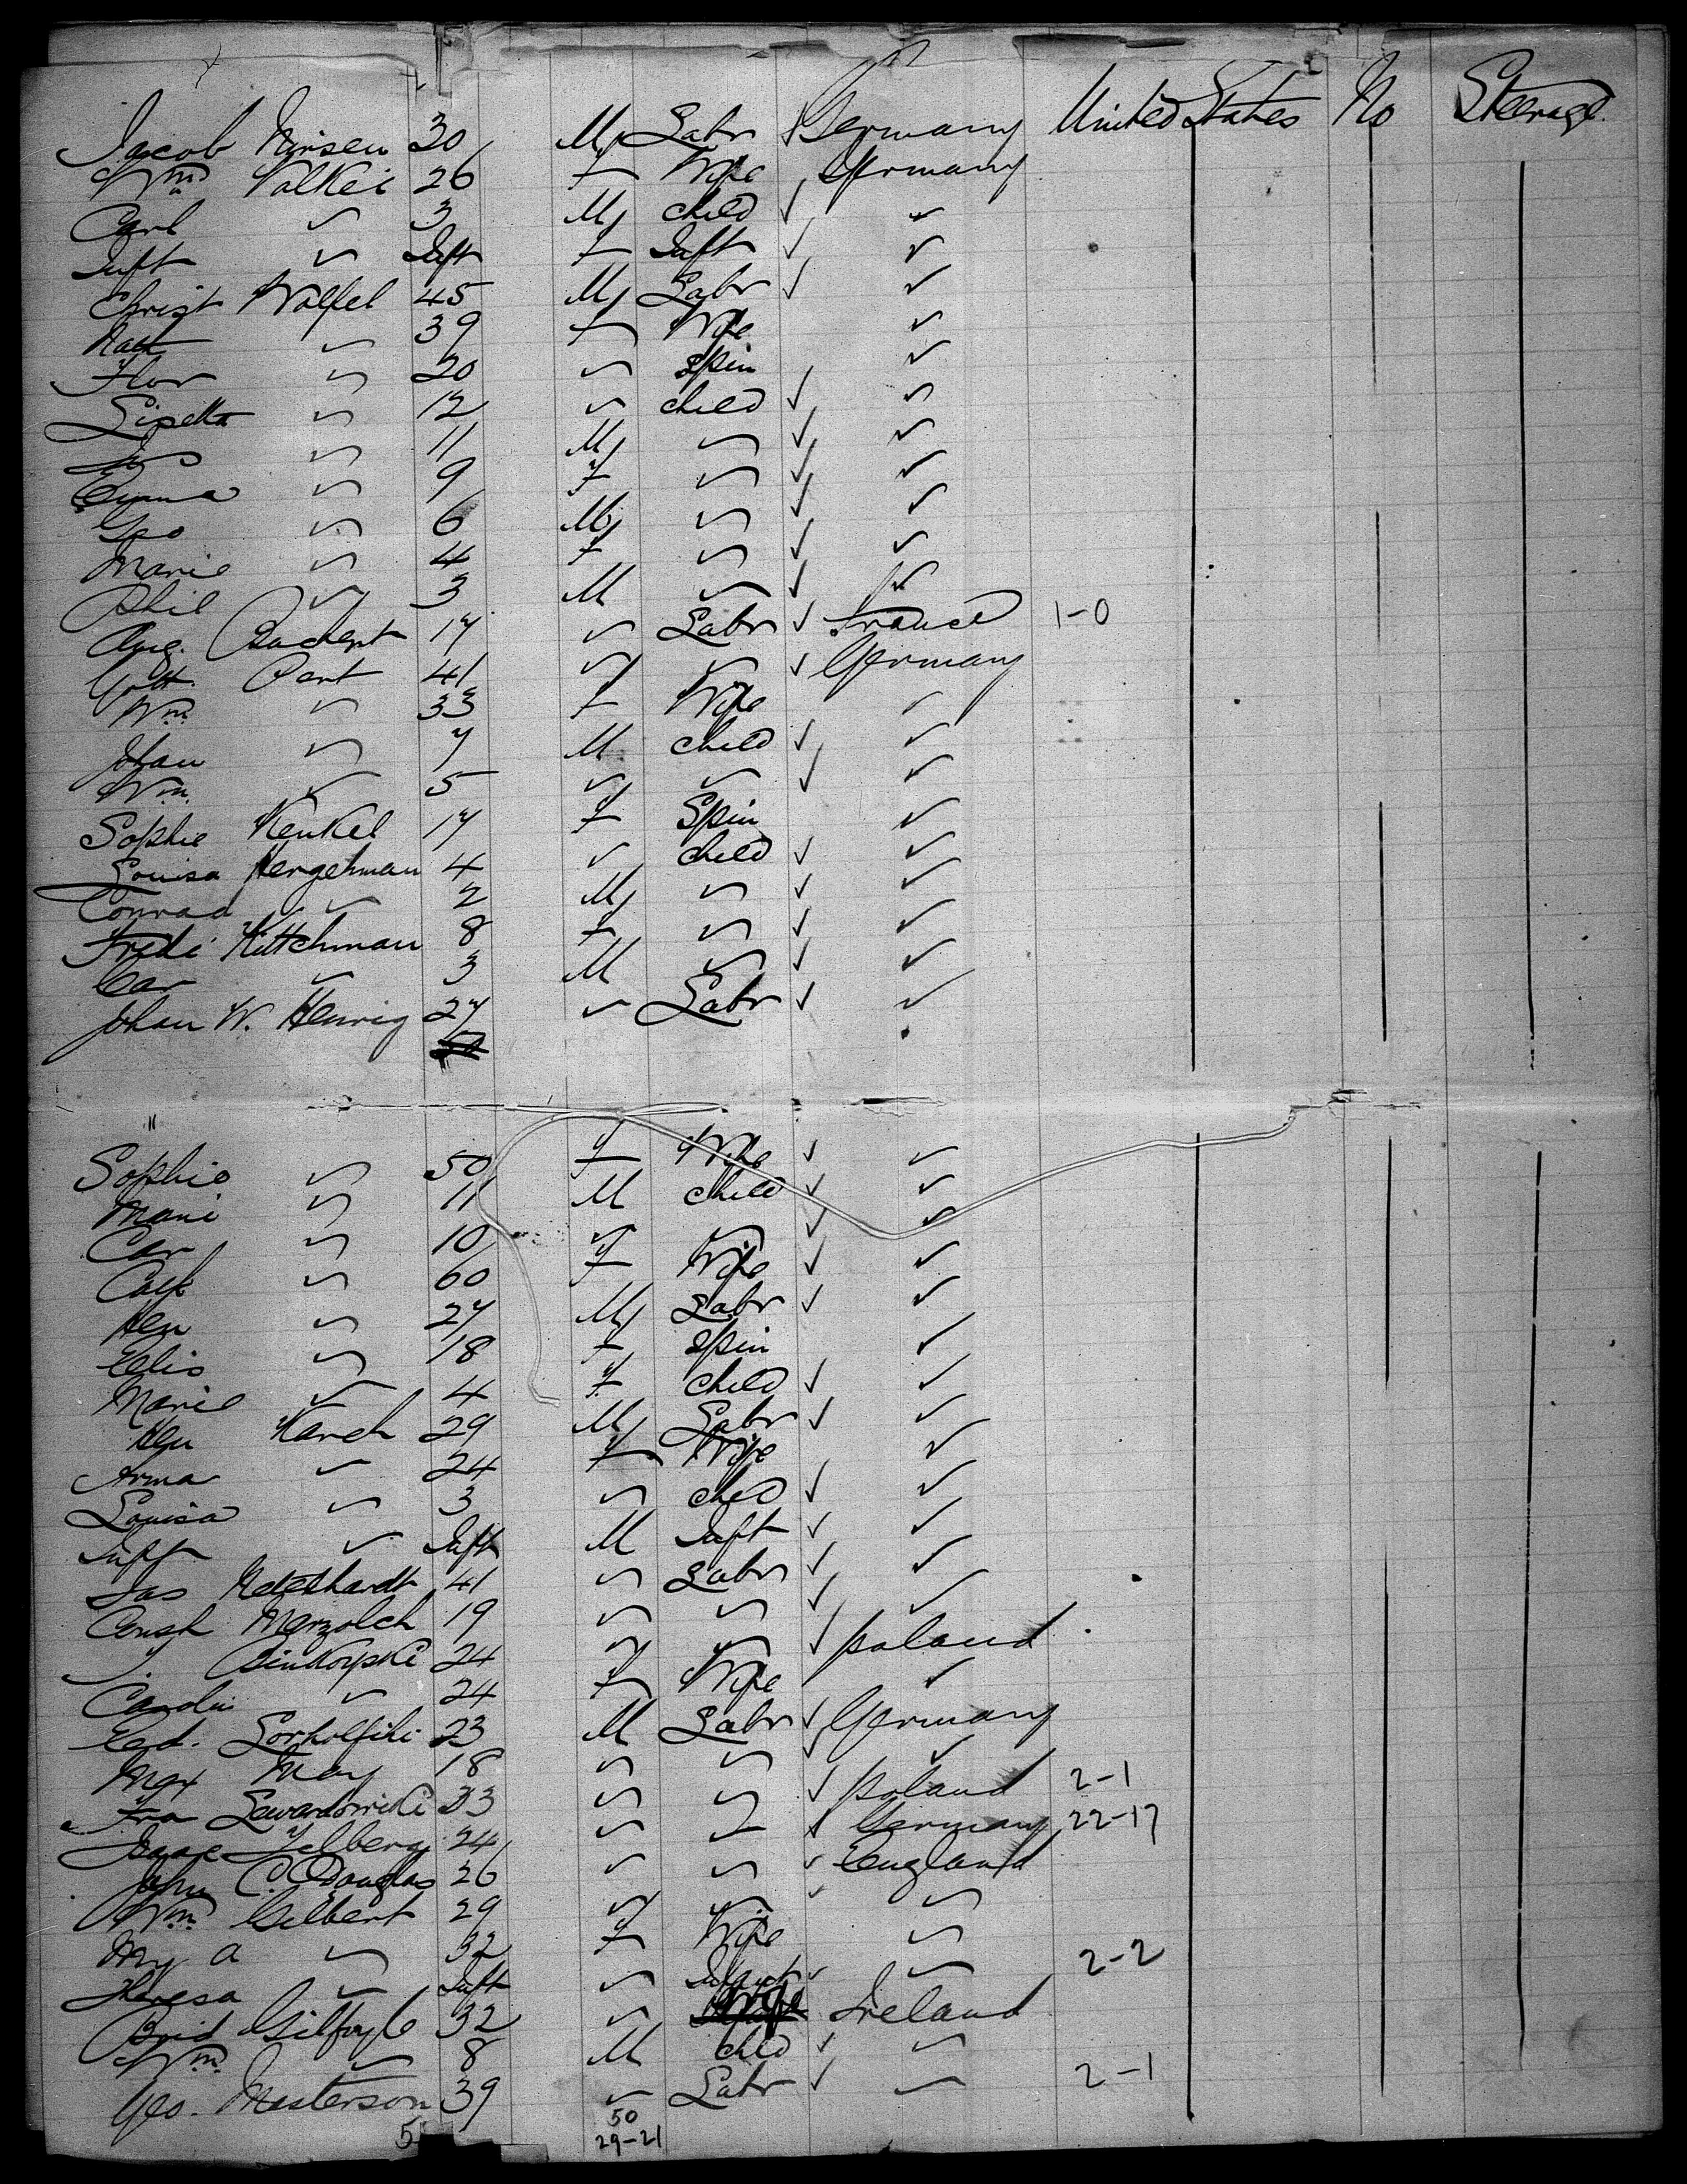 Jacob Nirsen 30 M Labr ✓ Germany United States No Steerage
Wm Valkei 26 F Wife Germany
Carl ✓ 3 M child ✓ ✓
Inft ✓ Inft F Inft ✓ ✓
Christ Wolfel 45 M Labr ✓ ✓
✓ 39 F Wife ✓
Flor ✓ 20 ✓ Spin ✓
Lisetta ✓ 12 ✓ child ✓ ✓
✓ 11 M ✓ ✓ ✓
Emma ✓ 9 F ✓ ✓ ✓
Geo ✓ 6 M ✓ ✓ ✓
Marie ✓ 4 F ✓ ✓ ✓
Phil ✓ 3 M ✓ ✓ ✓
Aug. Bachert 17 ✓ Labr ✓ France 1-0
Gott. Pert 41 ✓ ✓ ✓ Germany
Wm ✓ 33 F Wife ✓
Johan ✓ 7 M child ✓ ✓
Wm. ✓ 5 ✓ ✓ ✓ ✓
Sophie Kenkel 17 F Spin ✓
Louisa Hergehman 4 ✓ child ✓ ✓
Conrad ✓ 2 M ✓ ✓ ✓
Fredi Kittchman 8 F ✓ ✓ ✓
Car ✓ 3 M ✓ ✓ ✓
Johan W. Henrig 27 ✓ Labr ✓ ✓
"
Sophie ✓ 50 F Wife ✓ ✓
Mani ✓ 11 M child ✓ ✓
Car ✓ 10 F ✓ ✓ ✓
Cath ✓ 60 F Wife ✓ ✓
Hen ✓ 27 M Labr ✓ ✓
Elis ✓ 18 F Spin ✓
Marie ✓ 4 F child ✓ ✓
Hen Karch 29 M Labr ✓ ✓
Anna ✓ 24 F Wife ✓
Louisa ✓ 3 ✓ child ✓ ✓
Inft ✓ Inft M Inft ✓ ✓
Jas 41 ✓ Labr ✓ ✓
Marzolch 19 ✓ ✓ ✓ ✓
J. Binkowski 24 ✓ ✓ ✓ Poland
Carolin ✓ 24 F Wife ✓
Ed. 23 M Labr ✓ Germany
Max May 18 ✓ ✓ ✓ ✓
Fra Lewandowiki 33 ✓ ✓ ✓ Poland 2-1
Isaac Filberg 24 ✓ ✓ ✓ Germany 22-17
John C. Douglas 26 ✓ ✓ ✓ England
Wm Gilbert 29 ✓ ✓ ✓ ✓
My A ✓ 32 F Wife ✓
Theresa ✓ Inft ✓ Infant ✓ ✓ 2-2
Brid Gilfoyle 32 ✓ Wife Ireland
Wm. ✓ 8 M child ✓ ✓
Geo. Masterson 39 ✓ Labr ✓ ✓ 2-1
50
29-21